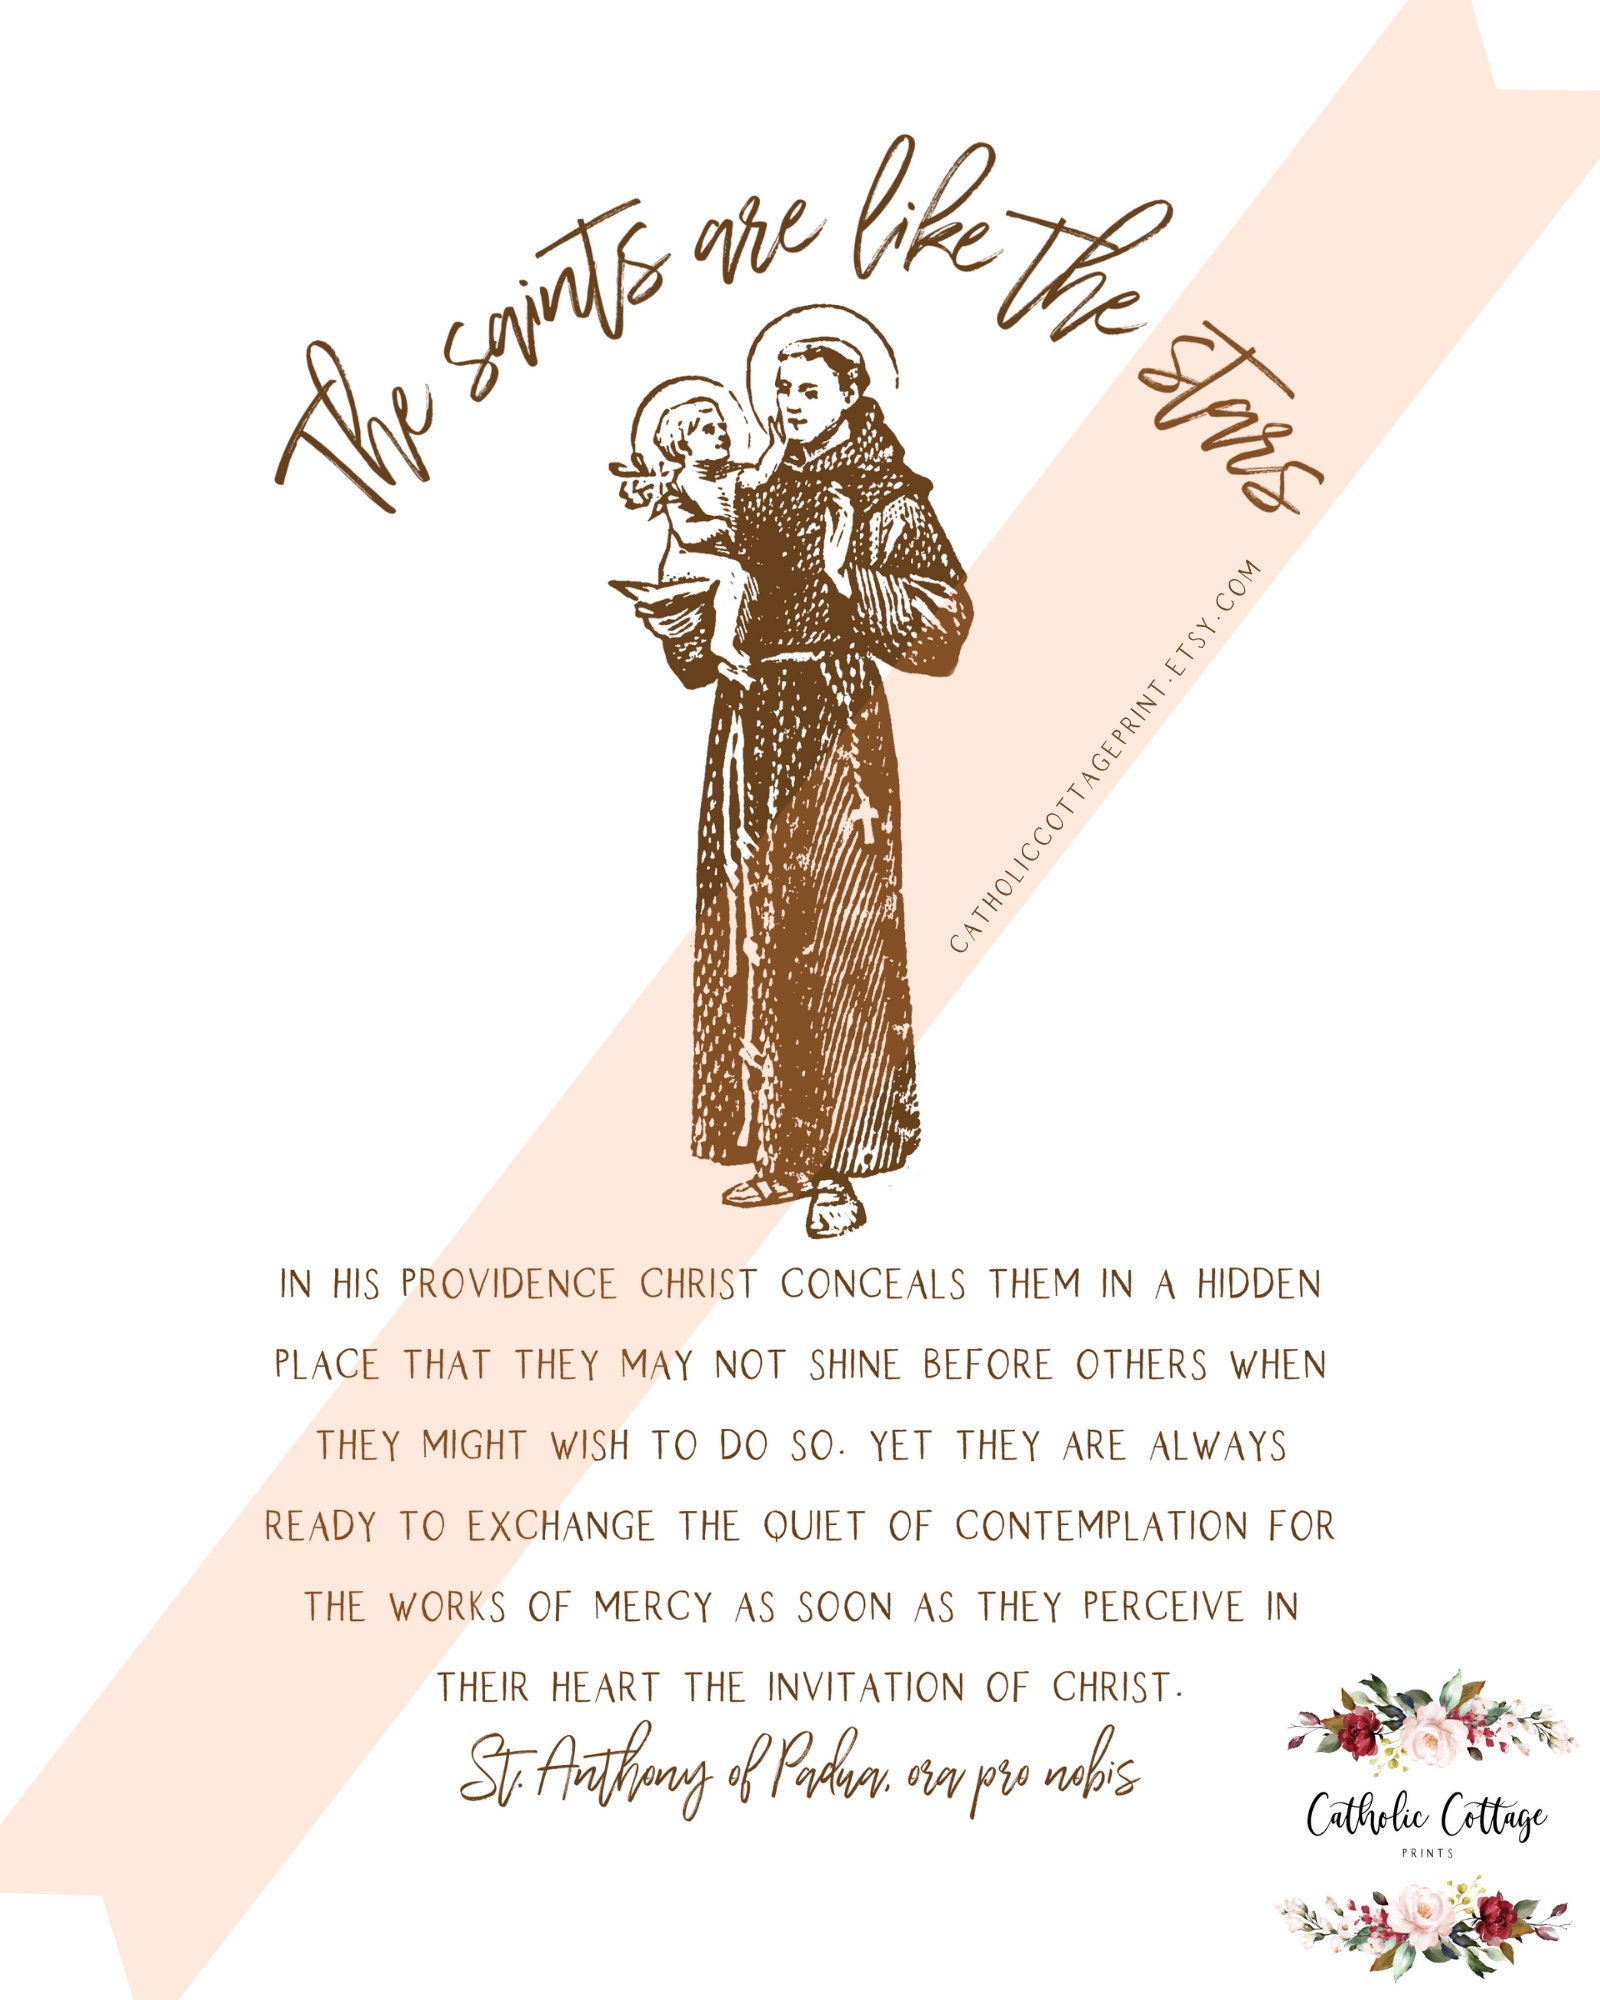 The saints are like the stars
CATHOLICCOTTAGEPRINT.ETSY.COM
IN HIS PROVIDENCE CHRIST CONCEALS THEM IN A HIDDEN
PLACE THAT THEY MAY NOT SHINE BEFORE OTHERS WHEN
THEY MIGHT WISH TO DO SO. YET THEY ARE ALWAYS
READY TO EXCHANGE THE QUIET OF CONTEMPLATION FOR
THE WORKS OF MERCY AS SOON AS THEY PERCEIVE IN
THEIR HEART THE INVITATION OF CHRIST.
St. Anthony of Padua, ora pro nobis
Catholic Cottage
PRINTS